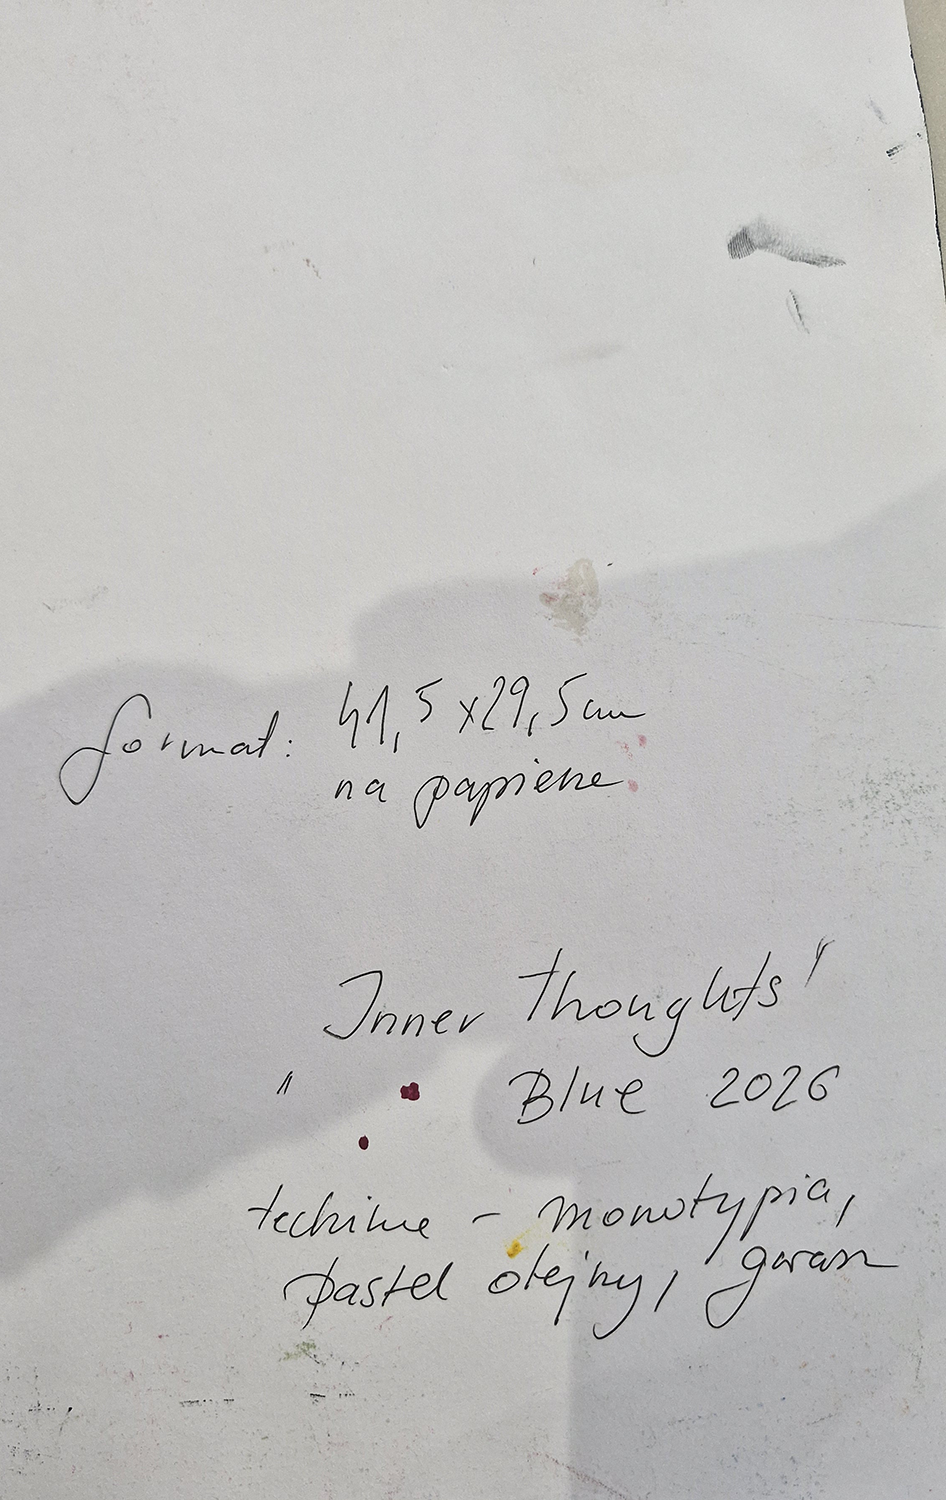 format: 41,5 x 29,5 cm
na papierze
Inner Thoughts"
" Blue 2026
technique - monotypia,
pastel olejny, gwasz